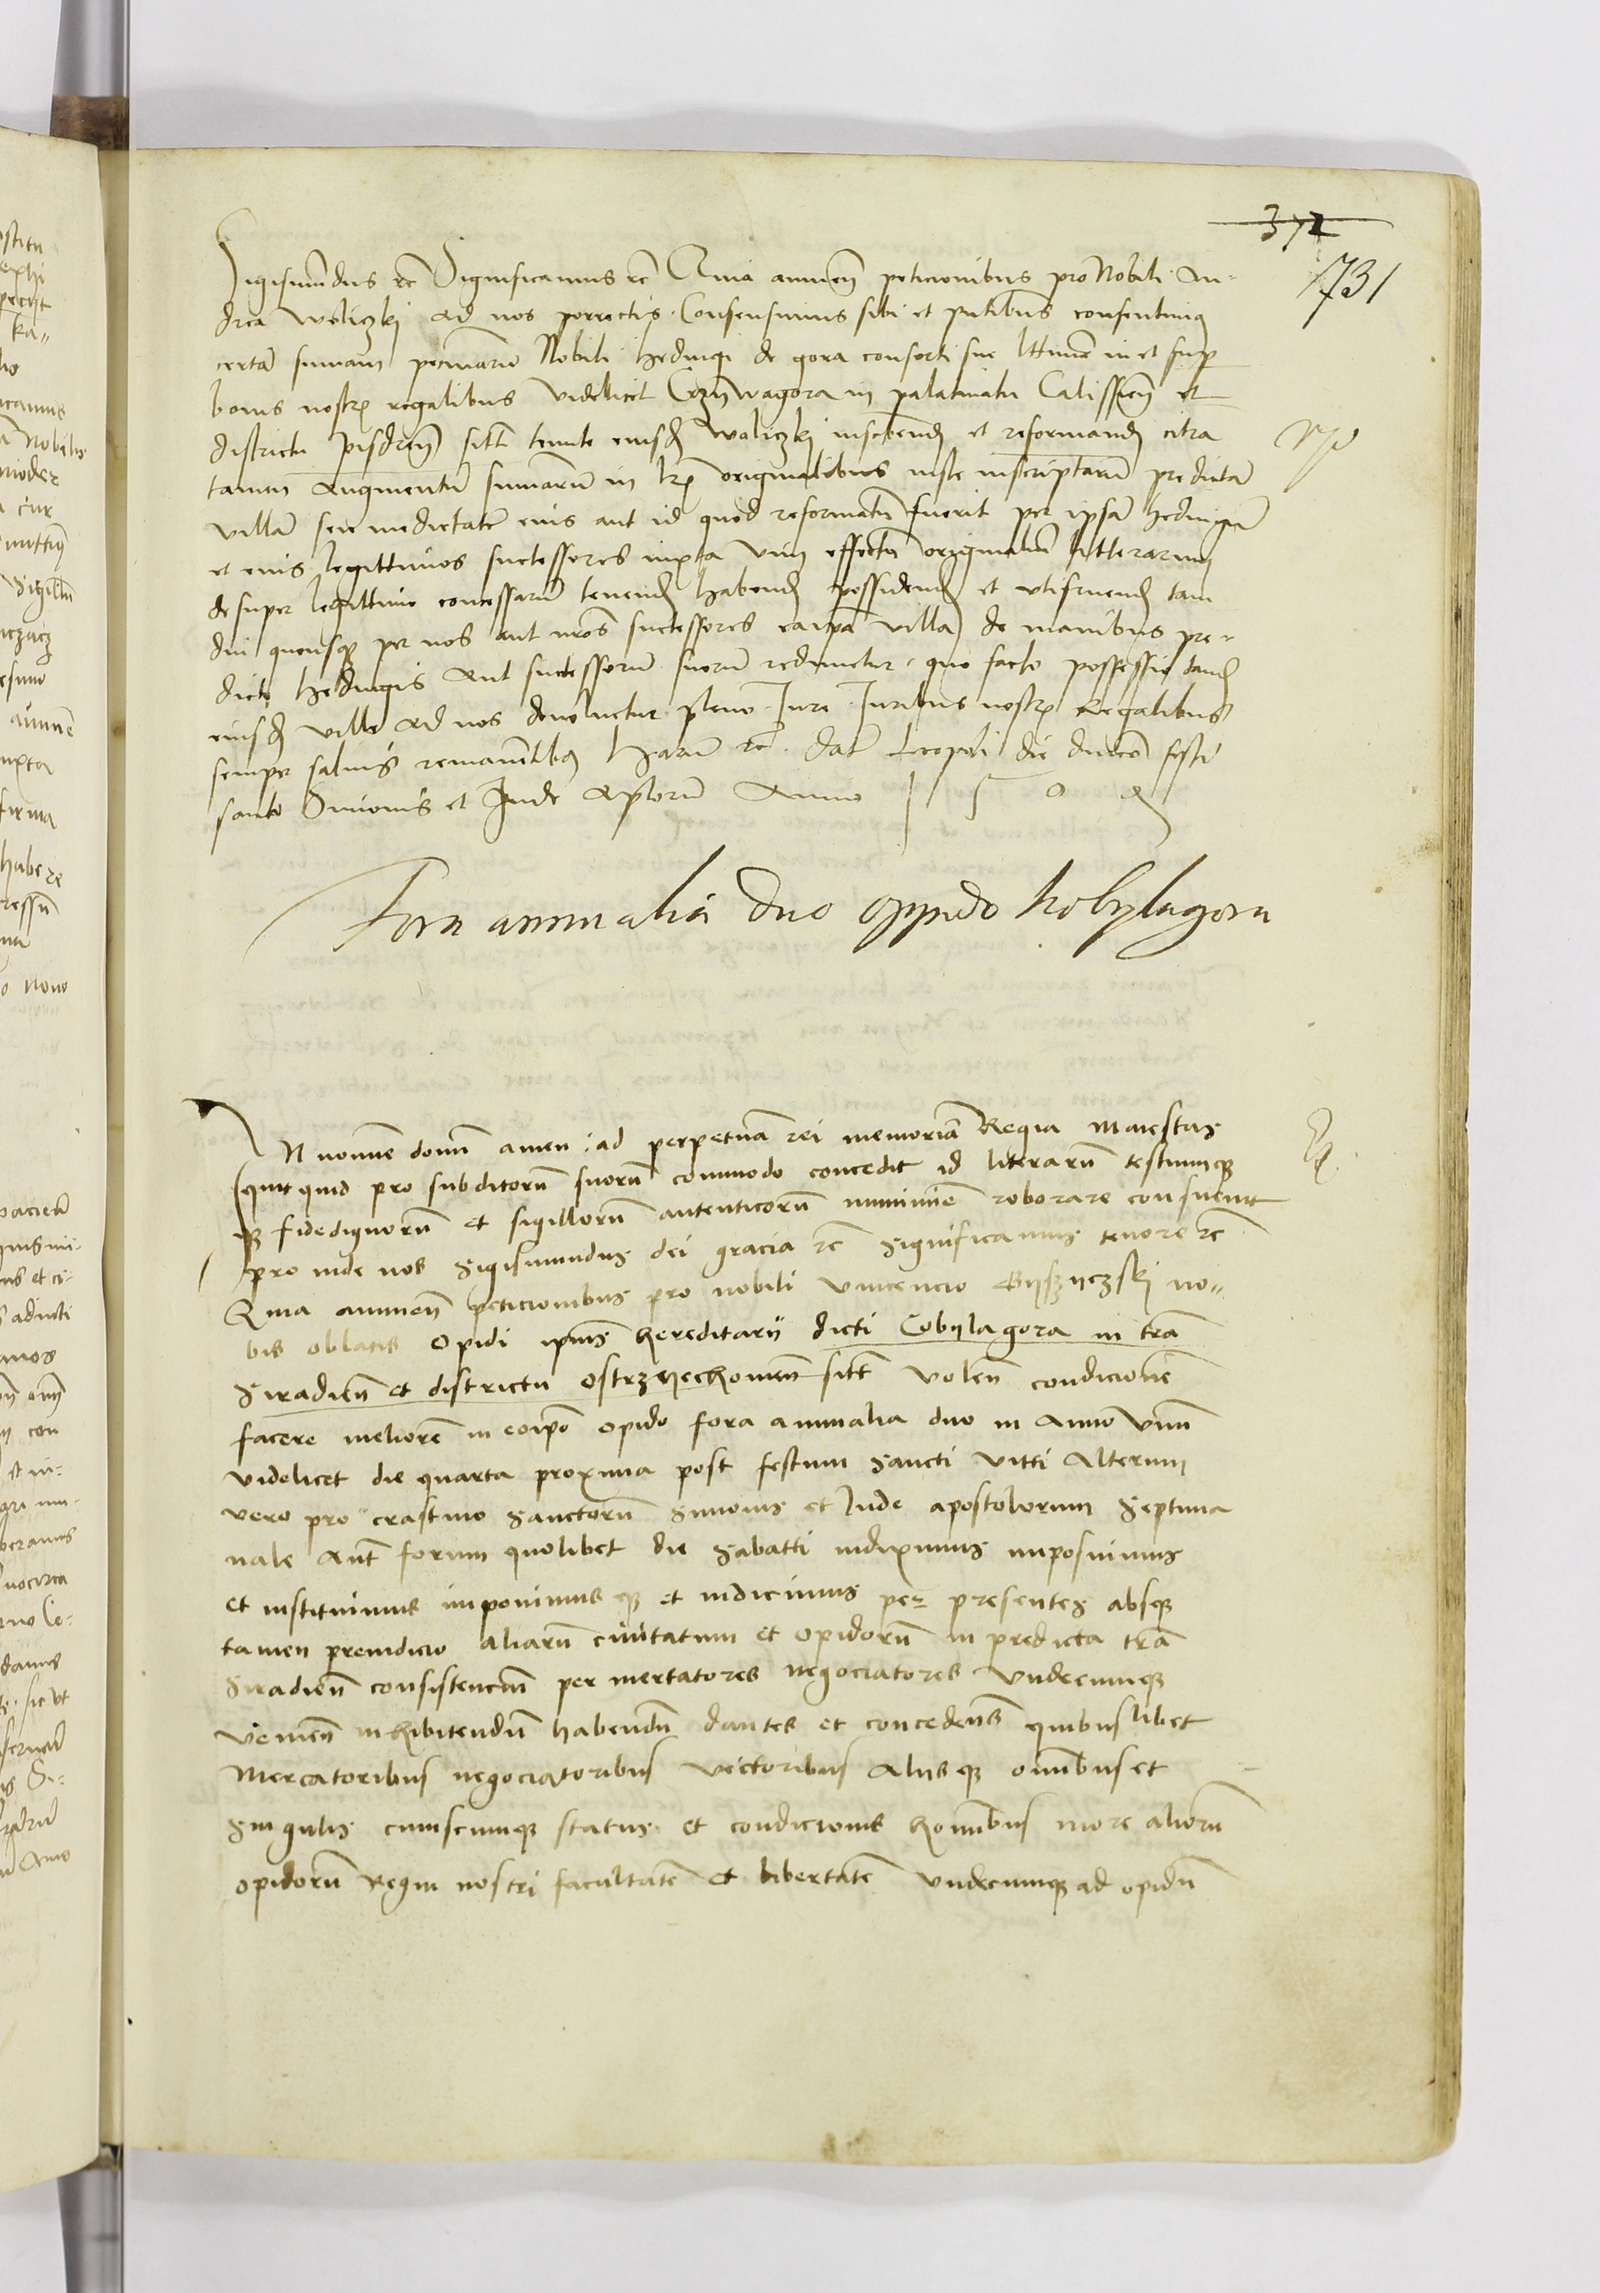 372
731
Sigismundus etc Significamus etc Quia annuen peticionibus pro Nobili An-
drea woliczki ad nos porrectis. Consensimus sibi et pntibus consentimus
certa summam pecuniaru Nobili hedwigi de gora consorti sue lttime in et super
bonis nostris regalibus videlicet Crzywagora in palatinatu Calissien et
districtu pisdren sitt tenute eiusd woliczki inscribend et reformand citra
tamen augmentu summaru in lris originalibus iuste inscriptaru predicta
villa seu medietate eius aut id quod reformatu fuerit per ipsa hedwiga
et eius legittimos successores iuxta vim effectu originaliu litterarum
desuper legittime concessaru tenend habend possidend et utifruend tam
diu quousq per nos aut nros successores eaipsa villa de manibus pre-
dicte hedwigis aut successoru suoru redimetur. quo facto possessio tand
eiusd ville ad nos devoluetur pleno Jure Juribus nostris Regalibus
semper saluis remanentibus haru etc. dat leopoli die dnico festi
sancto Simonis et Jude aplorum Anno 1509
Fora annualia duo oppido kobylagora
IN nomine domini amen. ad perpetua rei memoria Regia Maiestas
quitquid pro subditoru suoru commodo concedit id literaru testiumq
q fidedignoru et sigilloru autenticoru munimine roborare consueuit
proinde nos Sigismundus dei gracia etc significamus tenore etc
Quia annuen peticionibus pro nobili vincencio no-
bis oblatis opidi ipius hereditarii dicti Cobylagora in tra
Siradien et districtu ostrzyechouien sitt volen condicione
facere meliore in eoipo opido fora annualia duo in Anno vnu
videlicet die quarta proxima post festum sancti vitti alterum
vero pro crastino sanctoru Simonis et Jude apostolorum septima
nale aut forum quolibet die sabatti indiximus imposuimus
et instituimus imponimusq et indicimus per presentes absq
tamen preiudicio aliaru ciuitatum et opidoru in predicta tra
Siradien consistencium per mertatores negociatores vndecumq
venien inhibitendu habendu dantes et concedens quibuslibet
Mercatoribus negociatoribus vectoribus aliisq omibus et
singulis cuiuscumq status et condicionis hominibus more alioru
opidoru Regni nostri facultate et libertate vndecumq ad opidu